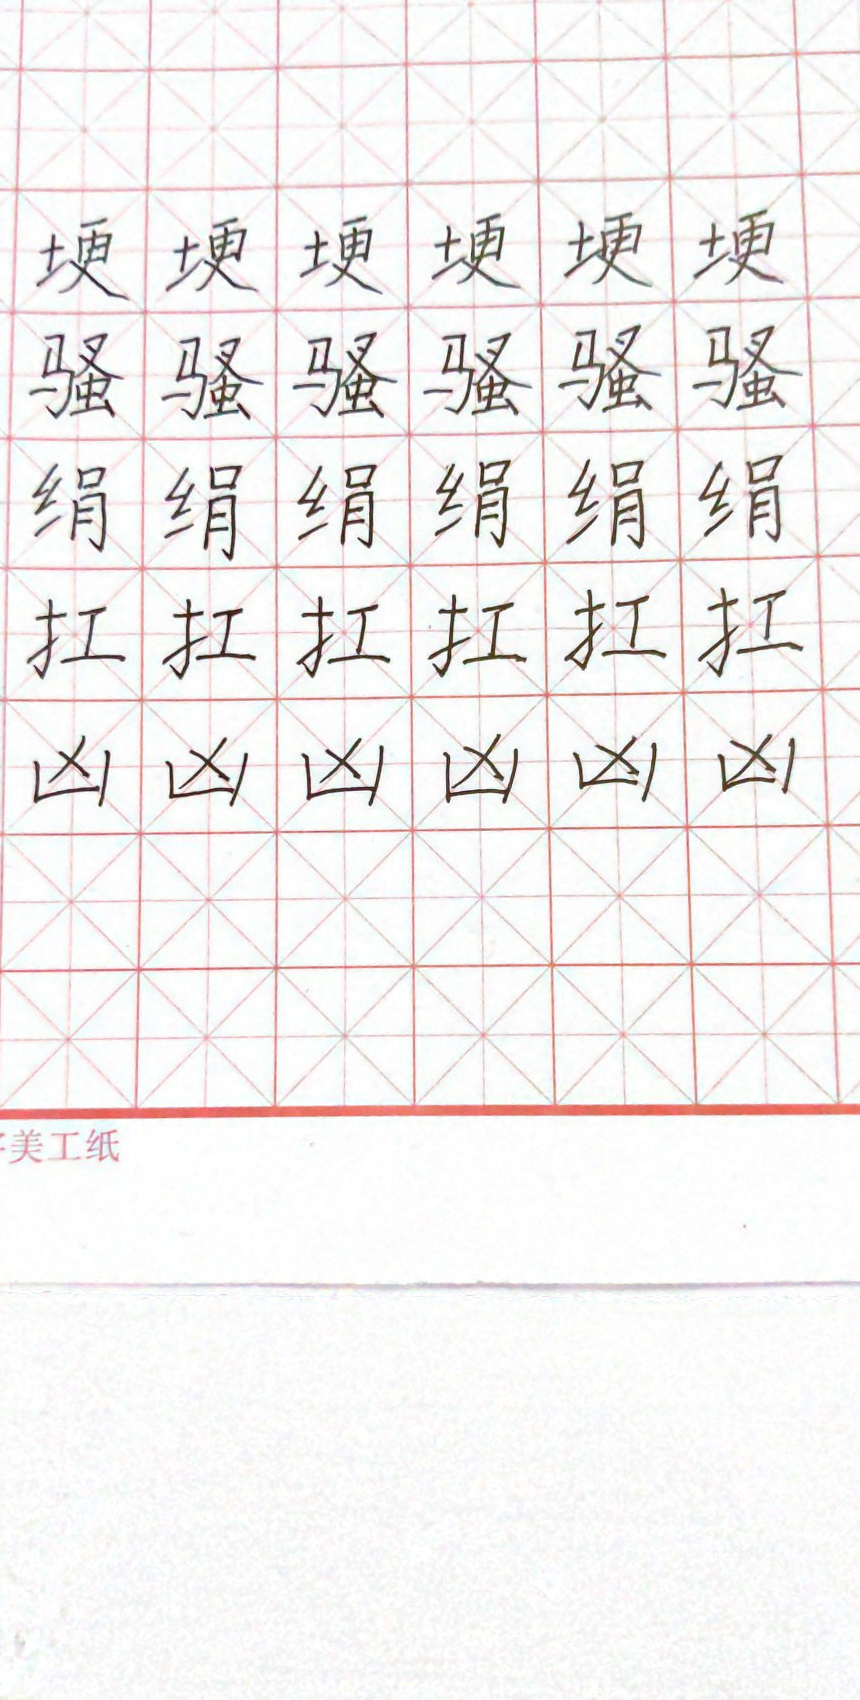 埂埂埂埂埂埂
骚骚骚骚骚骚
绢绢绢绢绢绢
扛扛扛扛扛扛
凶凶凶凶凶凶
美工纸